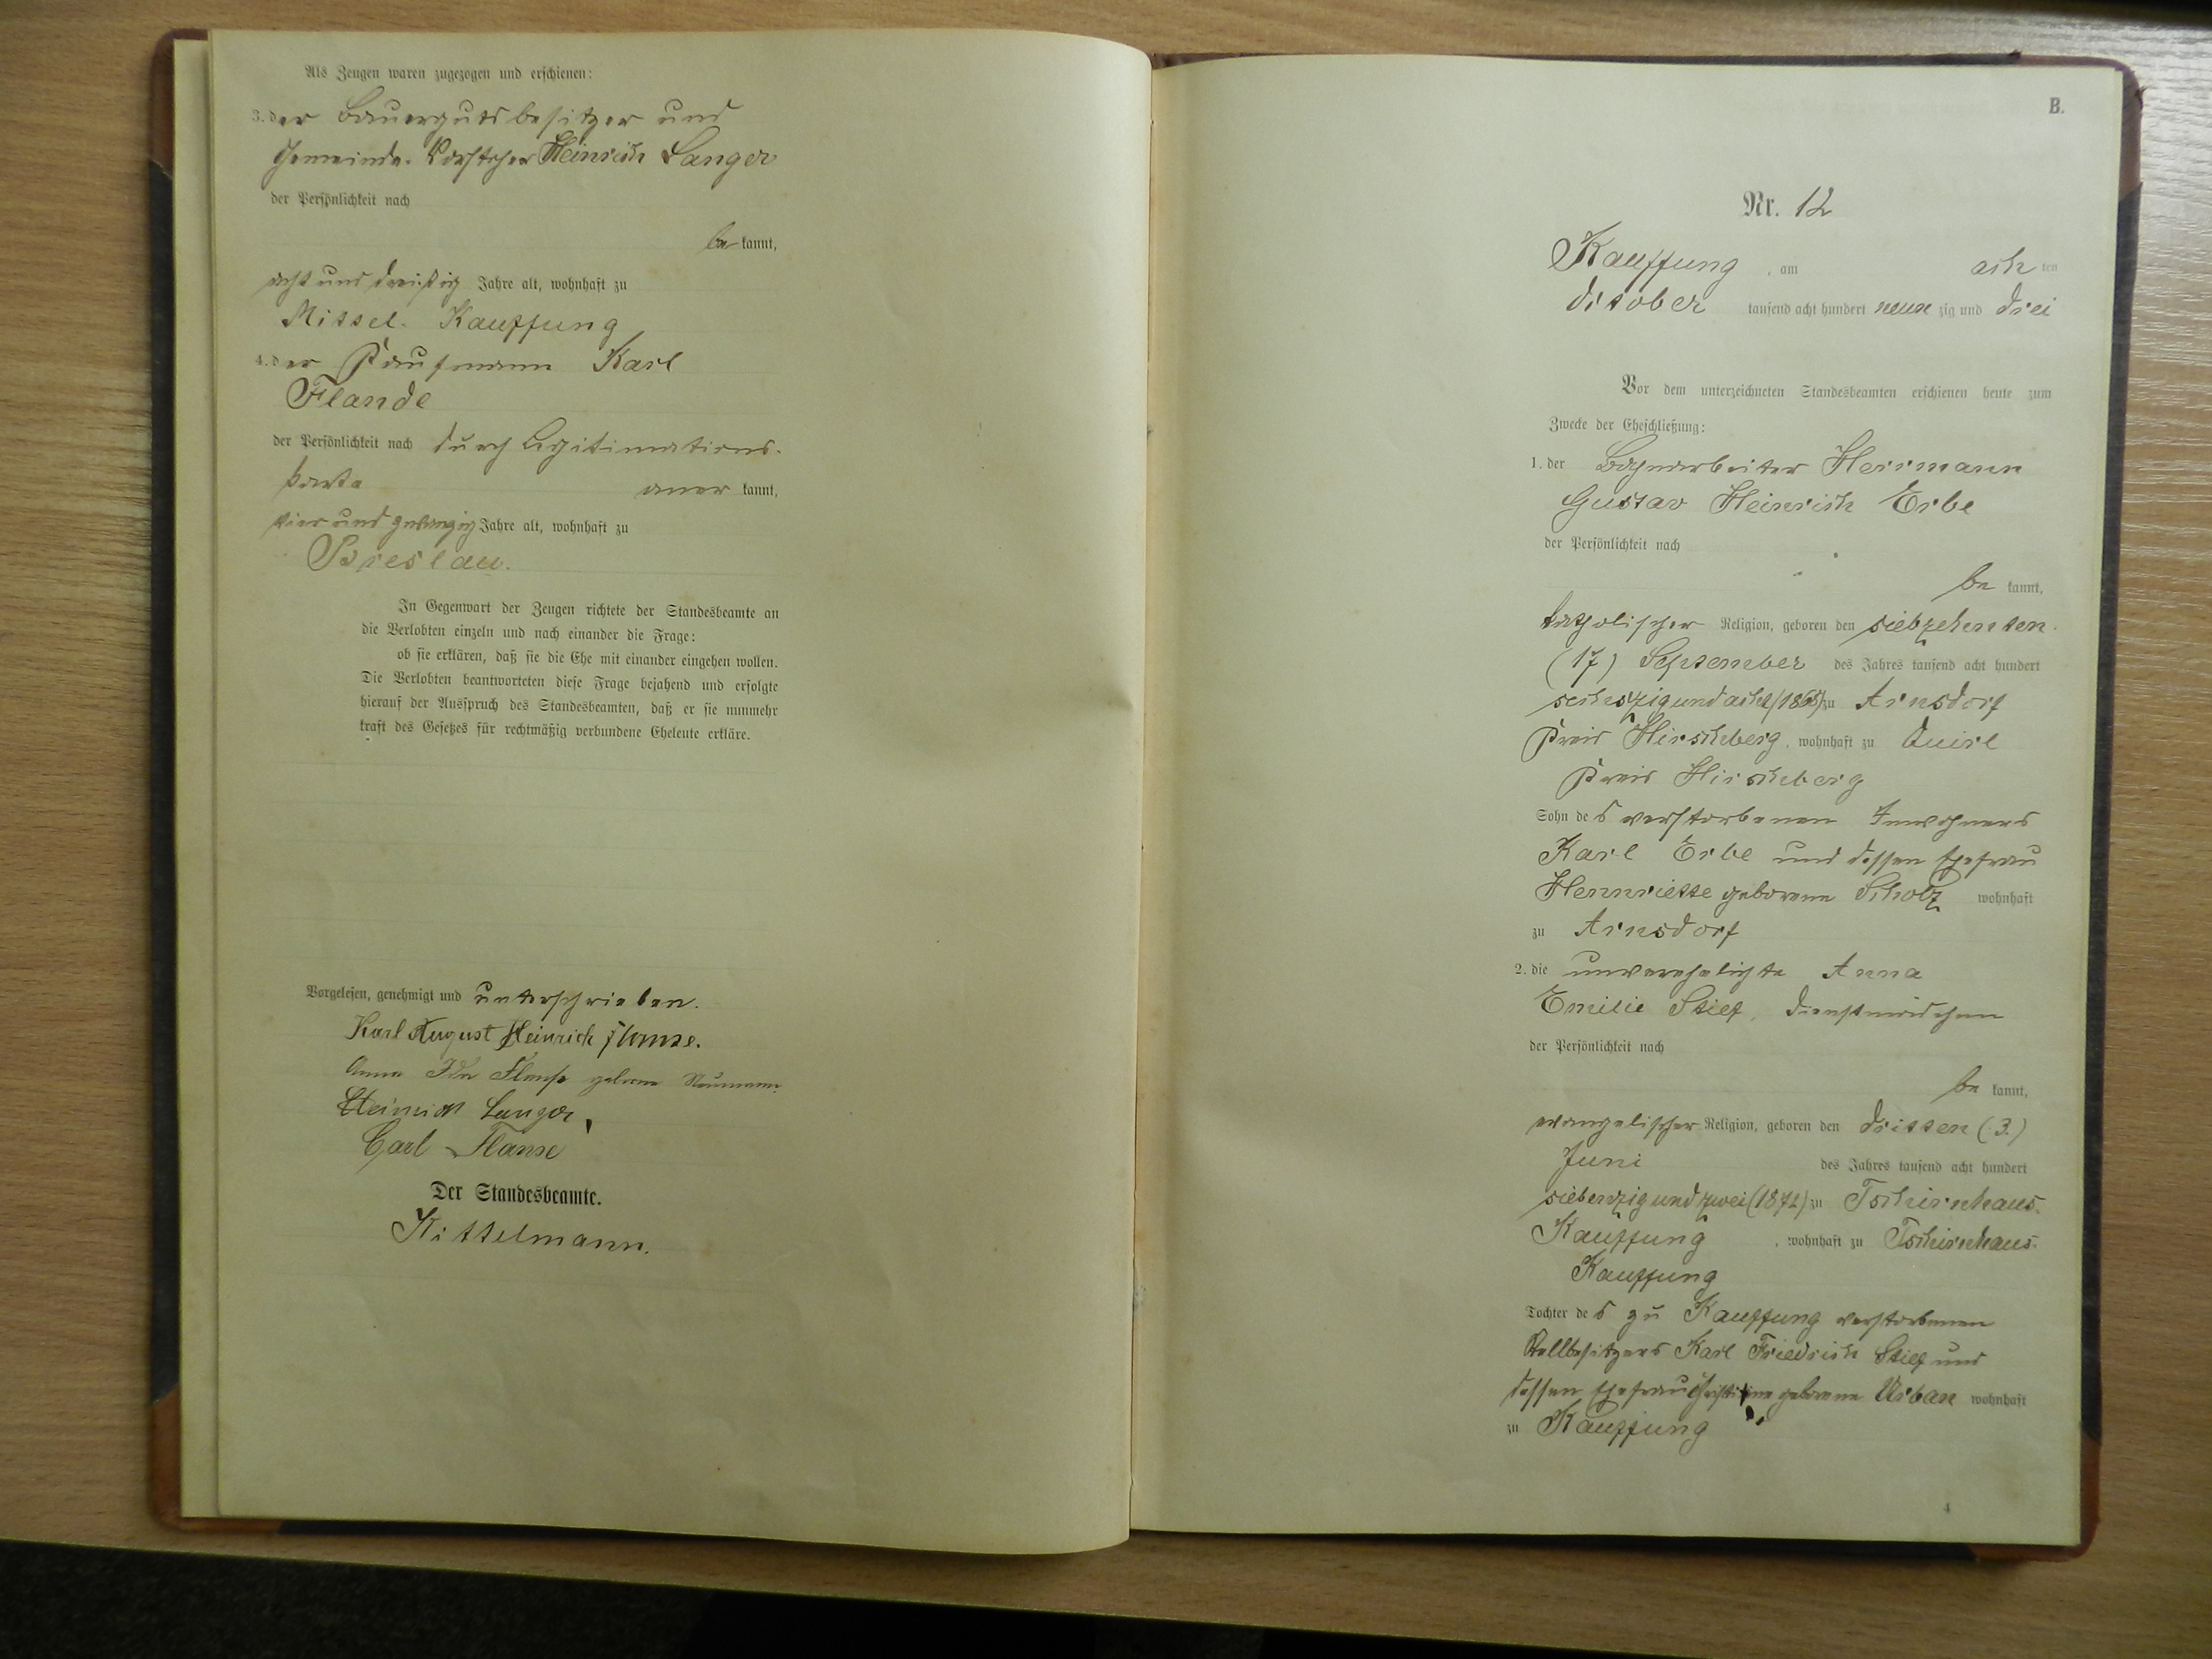 Als Zeugen waren zugezogen und erschienen:
3. der Bauergutsbesitzer und
Gemeinde-Vorsteher Heinrich Langer
der Persönlichkeit nach
be kannt,
acht und dreißig Jahre alt, wohnhaft zu
Mittel-Kauffung
4. der Kaufmann Karl
der Persönlichkeit nach durch Legitimations-
karte aner kannt,
vier und zwanzig Jahre alt, wohnhaft zu
Breslau.
In Gegenwart der Zeugen richtete der Standesbeamte an
die Verlobten einzeln und nach einander die Frage:
ob sie erklären, daß sie die Ehe mit einander eingehen wollen.
Die Verlobten beantworteten diese Frage bejahend und erfolgte
hierauf der Ausspruch des Standesbeamten, daß er sie nunmehr
kraft des Gesetzes für rechtmäßig verbundene Eheleute erkläre.
Vorgelesen, genehmigt und unterschrieben.
Karl August Heinrich
Anna Ida geborene Neumann.
Heinrich Langer,
Carl
Der Standesbeamte.
Kittelmann.
B.
Nr. 12
Kauffung, am ach ten
October tausend acht hundert neun zig und drei
Vor dem unterzeichneten Standesbeamten erschienen heute zum
Zwecke der Eheschließung:
1. der Bahnarbeiter Herrmann
Gustav Heinrich Erbe
der Persönlichkeit nach
be kannt,
katholischer Religion, geboren den siebzehnten
(17) September des Jahres tausend acht hundert
sechszig und acht (1868) zu Arnsdorf
Kreis Hirschberg, wohnhaft zu Quirl
Kreis Hirschberg
Sohn des verstorbenen Inwohners
Karl Erbe und dessen Ehefrau
Hennriette geborene Scholz wohnhaft
zu Arnsdorf
2. die unverehelichte Anna
Emilie Stief, Dienstmädchen
der Persönlichkeit nach
be kannt,
evangelischer Religion, geboren den dritten (3.)
Juni des Jahres tausend acht hundert
siebenzig und zwei (1872) zu Tschirnhaus-
Kauffung, wohnhaft zu Tschirnhaus-
Kauffung
Tochter des zu Kauffung verstorbenen
Stellbesitzers Karl Friedrich Stief und
dessen Ehefrau Christine geborene Urban wohnhaft
zu Kauffung
4